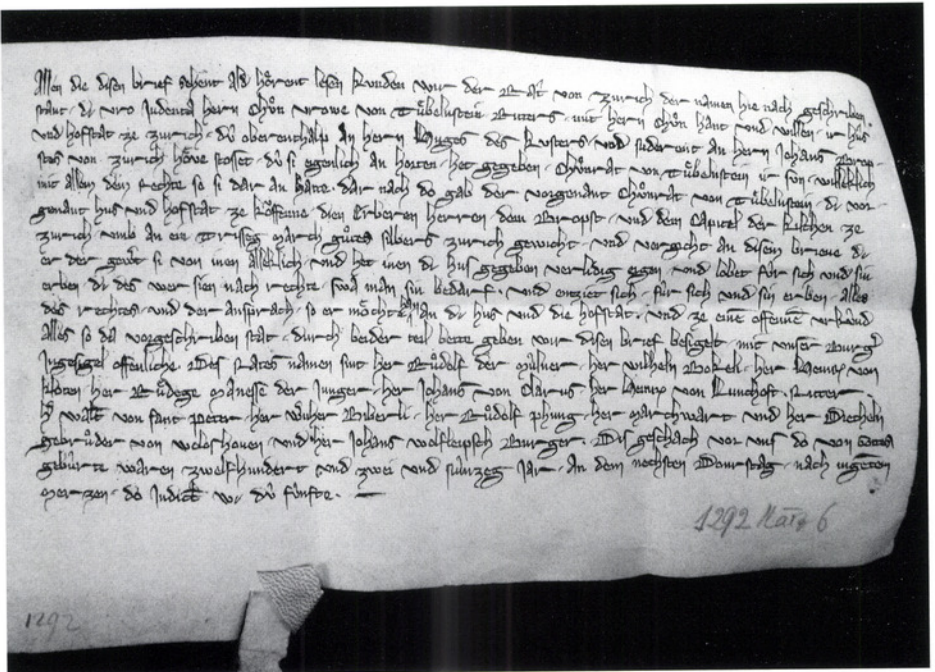 Allen die disen brief sehent ald hörent lesen kunden wir der Rat von Zurich der namen hie nach geschriben
stant · dc vro Judenta hern Chůn vrowe von Tůbelnstein Ritters · mit hern Chůn hant und willen · ir hus
und hofstat ze Zurich · dů obrenthalp an hern Huges des Kusters · und niderunt an hern Johans
von Zurich höve stosset · dů si eigenlich an horten · het gegeben · Chůnrat von Tůbelnstein ir sun · willeklich
mit allem dem rechte so si dar an hatte · dar nach do gab der vorgenant Chůnrat von Tůbelnstein · di vor-
genant hus und hofstat ze köffenne dien Erberen herren · dem Bropst · und dem Capitel der kilchen ze
Zurich · umb an ein Trisseg march gůtes silbers Zurich gewicht · und vergicht an disem brieve dc
er der gewert si von inen alleklich · und het inen dc hus gegeben ver lidig eigen · und lobet für sich und sin
erben · dc des wer sien nach rechte · swa man sin bedarf · und entziet sich · für sich und sin erben · alles
des rechtes · und der ansprach · so er möchte han an dc hus und die hofstat · und ze eine offenne urkůnd
alles so da vorgeschriben stat · durch beider teil bette geben wir disen brief besigelt · mit unser Burger
Ingesigel offenliche · Des Rates namen sint her Růdolf der Mulner · her Wilhelm Bokeli · her Heinr von
Kloten her Růdeger Manesse der Junger · her Johans von Clarus · her Heinr von Lunchoft · Ritter
her Walt von sant Peter · her Wher Biberli · her Růdolf phung · her Marchwart und her Diethelm
gebrůder von · und her Johans Wolfleipsch Burger · Dis geschach vor uns do von Gotes
gebůrte waren zwelfhundert und zwei und nůnzeg Jar · an dem nechsten Donrstag · nach ingenten
Merzen · do Indict was dů fünfte ·
1292 März 6
1292